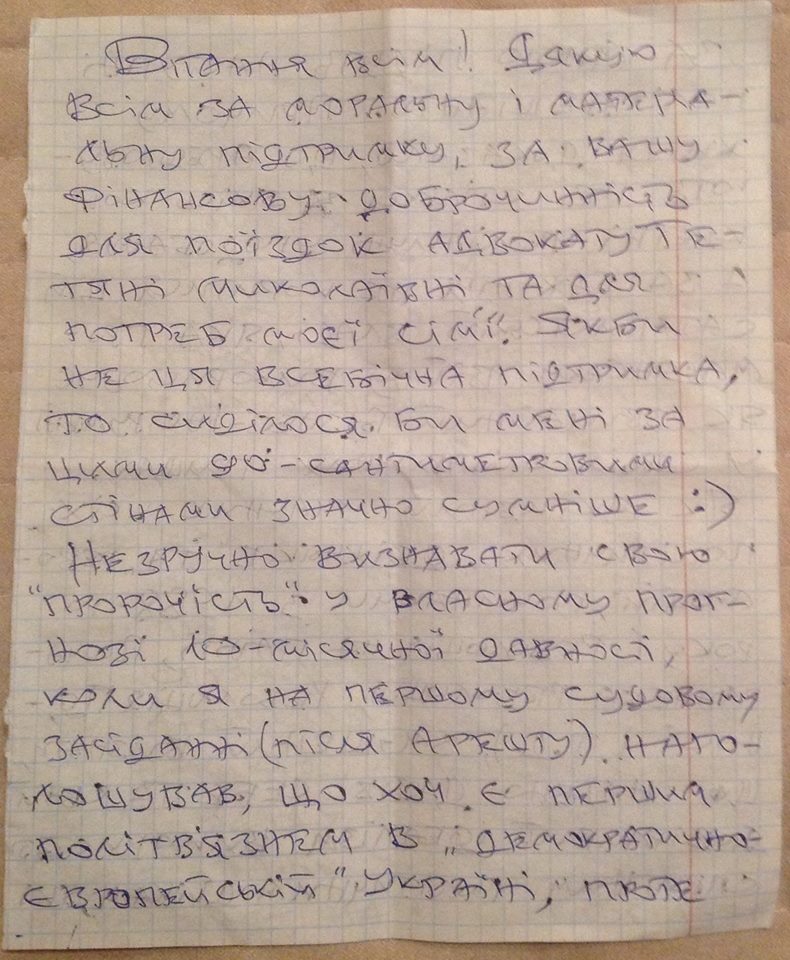 Вітання всім! Дякую
всім за моральну і матеріа-
льну підтримку, за вашу
фінансову доброчинність
для поїздок адвокату Те-
тяні Миколаївні та для
потреб моєї сімї. Якби
не ця всебічна підтримка,
то сиділося би мені за
цими 90-сантиметровими
стінами значно сумніше :)
Незручно визнавати свою
"пророчість" у власному прог-
нозі 10-місячної давності,
коли я на першому судовому
засіданні (після арешту) наго-
лошував, що хоч є першим
політв'язнем в „демократично-
європейській" Україні, проте